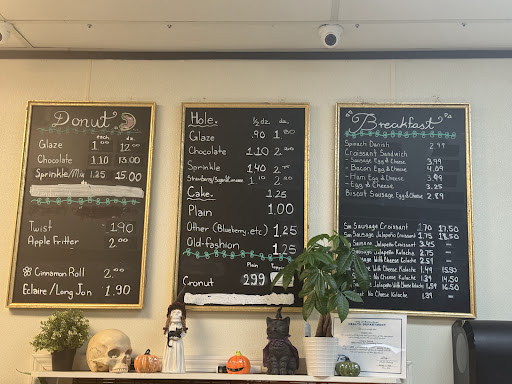 Donut
each dz.
Glaze 1.00 12.00
Chocolate 1.10 13.00
Sprinkle/Mix 1.25 15.00
Twist 1.90
Apple Fritter 2.00
Cinnamon Roll 2.00
Eclaire/Long Jon 1.90
Hole. ½ dz. dz.
Glaze .90
Chocolate 1.10
Sprinkle 1.40
Cake. 1.25
Plain 1.00
Other (Blueberry.etc) 1.25
Old-fashion 1.25
Plain
Cronut 2.99
Breakfast
Spinach Danish 2.99
Croissant Sandwich
- Sausage Egg & Cheese 3.99
- Bacon Egg & Cheese 4.09
- Ham Egg & Cheese 3.89
- Egg & Cheese 3.25
Biscuit Sausage Egg & Cheese 2.89
Sausage Croissant 1.70 17.50
Sausage Jalapeño Croissant 1.75 18.50
Sausage Jalapeño Croissant 3.45
Sausage Jalapeño Kolache 2.75
Sausage With Cheese Kolache
With Cheese Kolache 1.49 15.50
No Cheese Kolache 1.39 14.50
Jalapeño With Cheese Kolache 1.59 16.50
No Cheese Kolache 1.39